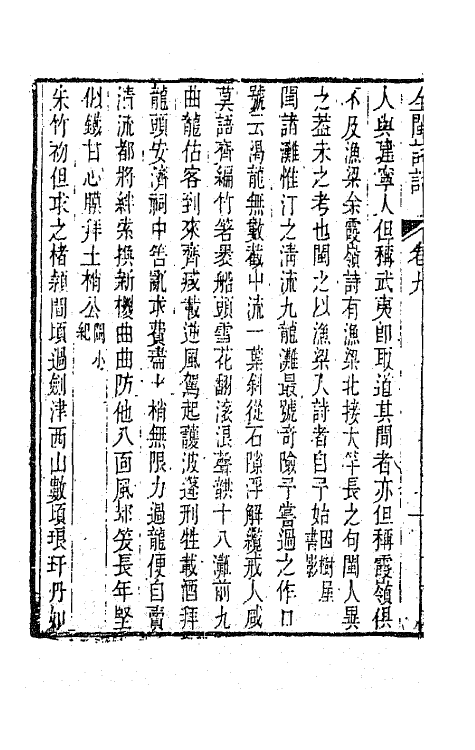 全閩詩話 卷九
人與建寧人但稱武夷卽取道其間者亦但稱霞嶺俱
不及漁梁余霞嶺詩有漁梁北接大竿長之句閩人異
之葢未之考也閩之以漁梁入詩者自予始因樹屋書影
閩諸灘惟汀之淸流九龍灘最號奇險予嘗過之作口
號云渴龍無數截中流一葉斜從石隙浮解纜戒人咸
莫語齊編竹箬裹船頭雪花翻滚浪聲鏦十八灘前九
曲龍估客到來齊戒載逆風駕起護波蓬刑牲載酒拜
龍頭安濟祠中筶亂求費盡 梢無限力過龍便自賣
淸流都將絆索換新樓曲曲防他八面風却笑長年堅
似鐵甘心膜拜土梢公閩小紀
朱竹初但求之楮穎間頃過劍津西山數頃琅玕丹如